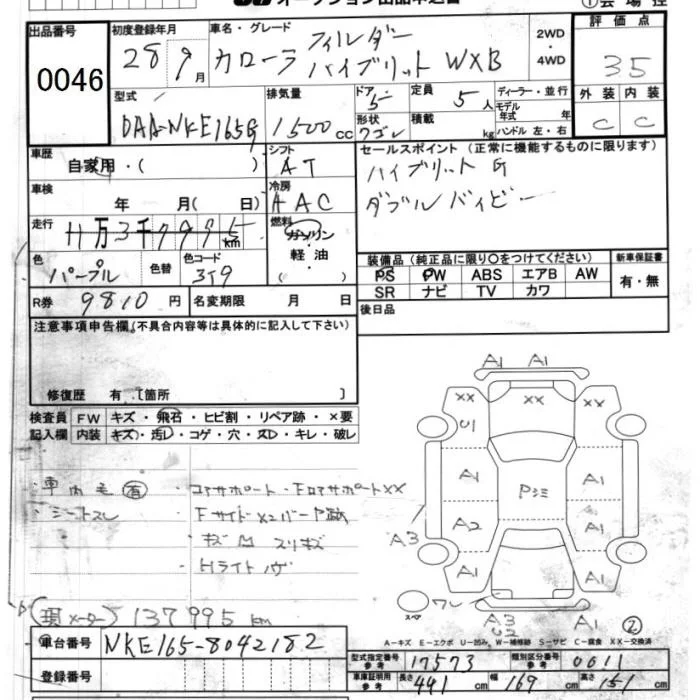 オークション出品申込書
出品番号 0046
初度登録年月 28 9月
車名・グレード カローラ フィルダー ハイブリット WXB
2WD ・ 4WD
評価点 35
外装 内装
C C
型式 DAA-NKE165G
排気量 1500cc
ドア 5
形状 ワゴン
定員 5人
積載 kg
ディーラー・並行
モデル年式 年
ハンドル 左・右
車歴 自家用・( )
シフト AT
セールスポイント (正常に機能するものに限ります)
ハイブリット G
車検 年 月( 日)
冷房 AAC
走行 11万3千7995km
燃料 ガソリン・軽油 ( )
色 パープル
色替
色コード 3J9
装備品 (純正品に限り○をつけてください)
PS PW ABS エアB AW
SR ナビ TV カワ
新車保証書 有・無
R券 9810円
名変期限 月 日
後日品
注意事項申告欄(不具合内容等は具体的に記入して下さい)
修復歴 有 [箇所 ]
検査員記入欄
FW キズ・飛石・ヒビ割・リペア跡・×要
内装 キズ・汚レ・コゲ・穴・スレ・キレ・破レ
・車内毛 有
・シートスレ
コアサポート・FロアサポートXX
キズ 凹 スリキズ
Hライト
(現メーター) 137995km
A1 A1
XX XX XX
U1
A1 A1
A2 A1
A3
A1 A1
スペア
A3 U2 A1 ②
A-キズ E-エクボ U-凹み W-補修跡 S-サビ C-腐食 XX-交換済
車台番号 NKE165-8042182
登録番号
型式指定番号 参考 17573
類別区分番号 参考 0011
車庫証明用 参考 長さ 441cm 幅 169cm 高さ 151cm